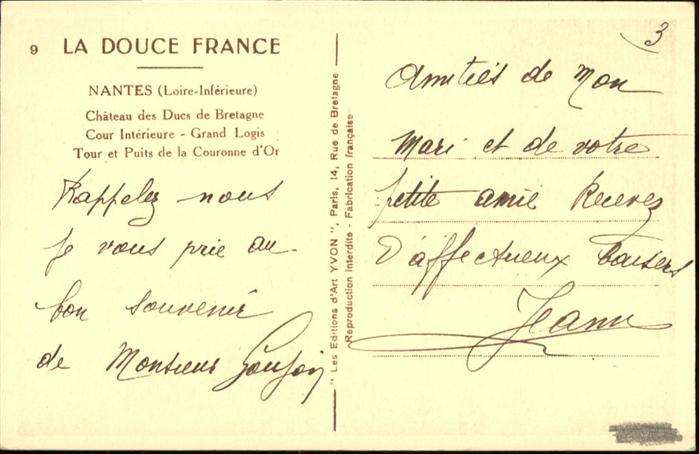 9 LA DOUCE FRANCE
NANTES (Loire-Inférieure)
Château des Ducs de Bretagne
Cour Intérieure - Grand Logis
Tour et Puits de la Couronne d'Or
Rappelez nous
je vous prie au
bon souvenir
de Monsieur
"Les Editions d'Art YVON", Paris, 14, Rue de Bretagne
Reproduction interdite - Fabrication française
3
Amitiés de Mon
Mari et de votre
petite amie Recevez
D'affectueux baisers
Jeanne